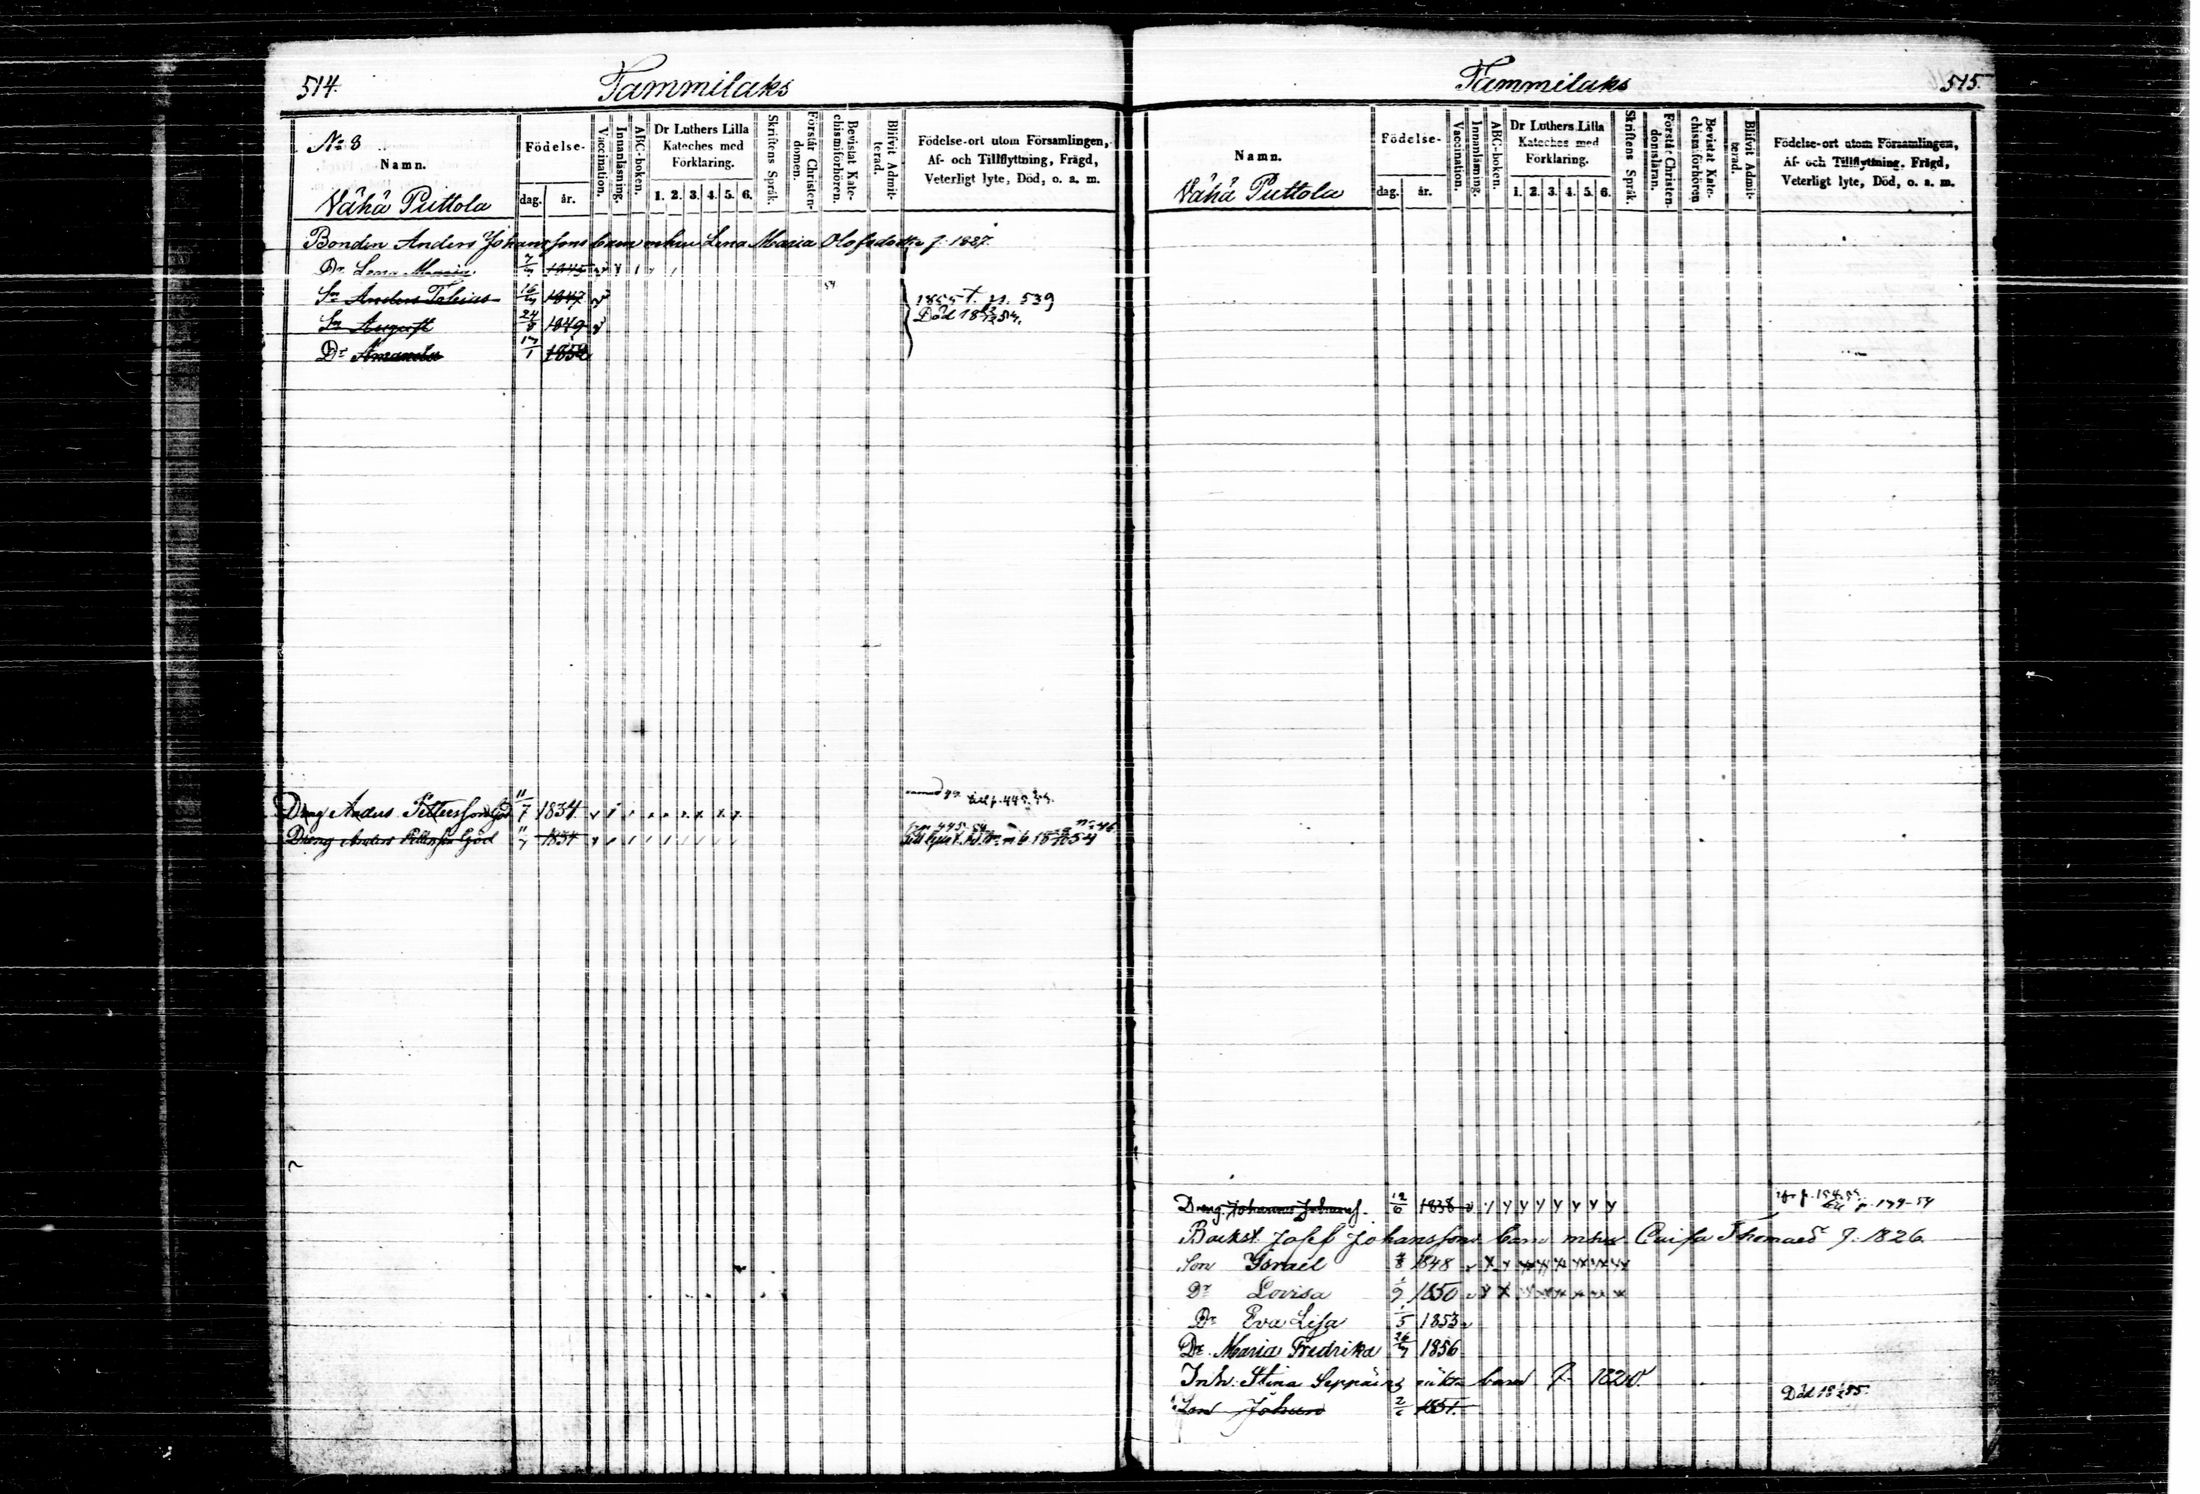 514.
Tammilaks
No 8
Namn.
Vähä Puttola
Födelse-
dag.
år.
Vaccination.
Innanläsning.
ABC-boken.
Dr Luthers Lilla
Kateches med
Förklaring.
1. 2. 3. 4. 5. 6.
Skriftens Språk.
Förstår Christen-
domen.
Bevistat Kate-
chismiförhören.
Blifvit Admit-
terad.
Födelse-ort utom Församlingen,
Af- och Tillflyttning, Frägd,
Veterligt lyte, Död, o. s. m.
Bonden Anders Johanssons barn m hu Lena Maria Olofsdotter f. 1827.
Dr Lena Maria 1845
Sn Anders Tobias 16 1847
1855 f. p. 539
Sn August 24 1849
Död 18 54.
Dr Amanda 17/1 1852
Dreng Anders Pettersson Göd 11/7 1834
till p. 445.
Dreng Anders Pettersson Göd 11/7 1834
515.
Tammilaks
Namn.
Vähä Puttola
Födelse-
dag.
år.
Vaccination.
Innanläsning.
ABC-boken.
Dr Luthers Lilla
Kateches med
Förklaring.
1. 2. 3. 4. 5. 6.
Skriftens Språk.
Förstår Christen-
domsläran.
Bevistat Kate-
chismiförhören
Blifvit Admit-
terad.
Födelse-ort utom Församlingen,
Af- och Tillflyttning, Frägd,
Veterligt lyte, Död, o. s. m.
Dreng Johannes Johansf. 12/6 1838
Backst. Josef Johanssons barn m hu Caisa Thomaed f. 1826.
Son Israel 1848
Dr Lovisa 1/9 1850
Dr Eva Lisa 1/5 1853
Dr Maria Fredrika 26/7 1856
Inh: Stina Seppäins oäkta barn f. 1820.
Son Johan 1851.
Död 18 55.